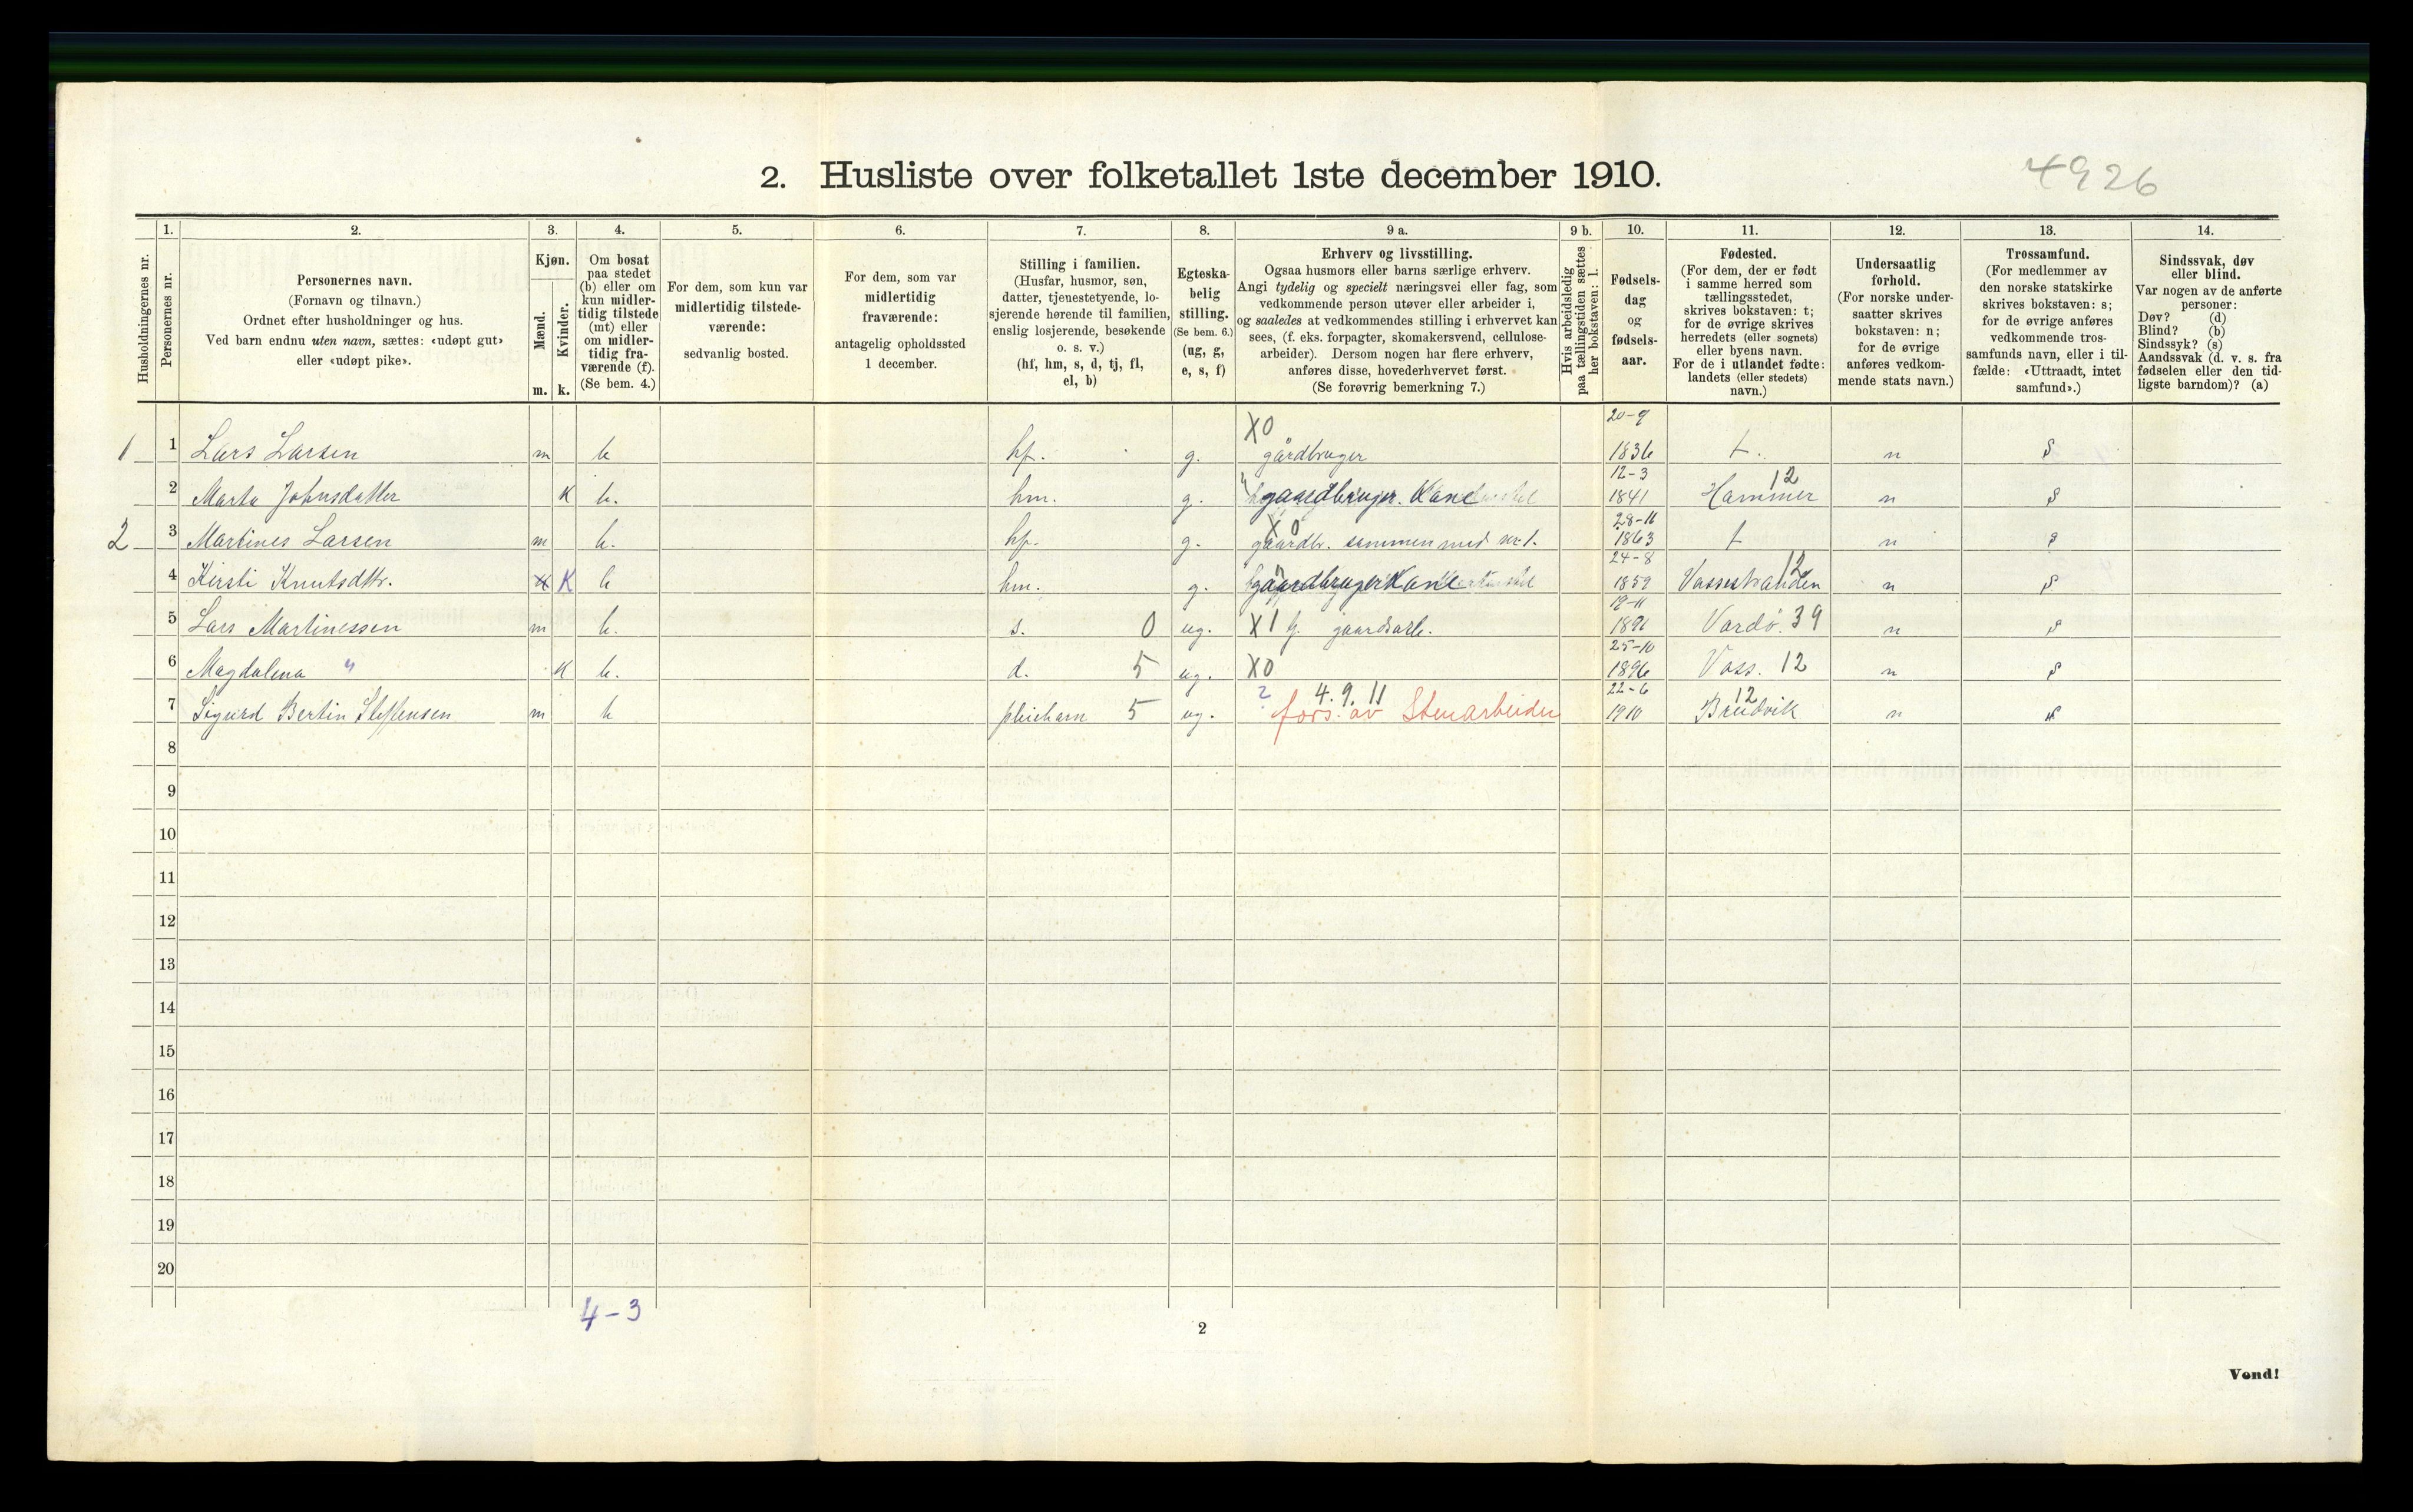 2. Husliste over folketallet 1ste december 1910.
4926
1. 2. 3. 4. 5. 6. 7. 8. 9 a. 9 b. 10. 11. 12. 13. 14.
Husholdningernes nr.
Personernes nr.
Personernes navn.
(Fornavn og tilnavn.)
Ordnet efter husholdninger og hus.
Ved barn endnu uten navn, sættes: «udøpt gut»
eller «udøpt pike».
Kjøn.
Mænd.
Kvinder.
m. k.
Om bosat
paa stedet
(b) eller om
kun midler-
tidig tilstede
(mt) eller
om midler-
tidig fra-
værende (f).
(Se bem. 4.)
For dem, som kun var
midlertidig tilstede-
værende:
sedvanlig bosted.
For dem, som var
midlertidig
fraværende:
antagelig opholdssted
1 december.
Stilling i familien.
(Husfar, husmor, søn,
datter, tjenestetyende, lo-
sjerende hørende til familien,
enslig losjerende, besøkende
o. s. v.)
(hf, hm, s, d, tj, fl,
el, b)
Egteska-
belig
stilling.
(Se bem. 6.)
(ug, g,
e, s, f)
Erhverv og livsstilling.
Ogsaa husmors eller barns særlige erhverv.
Angi tydelig og specielt næringsvei eller fag, som
vedkommende person utøver eller arbeider i,
og saaledes at vedkommendes stilling i erhvervet kan
sees, (f. eks. forpagter, skomakersvend, cellulose-
arbeider). Dersom nogen har flere erhverv,
anføres disse, hovederhvervet først.
(Se forøvrig bemerkning 7.)
Hvis arbeidsledig
paa tællingstiden sættes
her bokstaven: l.
Fødsels-
dag
og
fødsels-
aar.
Fødested.
(For dem, der er født
i samme herred som
tællingsstedet,
skrives bokstaven: t;
for de øvrige skrives
herredets (eller sognets)
eller byens navn.
For de i utlandet fødte:
landets (eller stedets)
navn.)
Undersaatlig
forhold.
(For norske under-
saatter skrives
bokstaven: n;
for de øvrige
anføres vedkom-
mende stats navn.)
Trossamfund.
(For medlemmer av
den norske statskirke
skrives bokstaven: s;
for de øvrige anføres
vedkommende tros-
samfunds navn, eller i til-
fælde: «Uttraadt, intet
samfund».)
Sindssvak, døv
eller blind.
Var nogen av de anførte
personer:
Døv? (d)
Blind? (b)
Sindssyk? (s)
Aandssvak (d. v. s. fra
fødselen eller den tid-
ligste barndom)? (a)
X0 20-9
1 1 Lars Larsen m b hf. g. gårdbruger 1836 t. n s
12-3 12
2 Marta Johnsdatter k b. hm. g. gaardbruger. Kone 1841 Hammer n s
X0 28-11
2 3 Martines Larsen m b. hf. g. gaardbr. sammen med nr 1. 1863 t n s
24-8 12
4 Kirsti Knutsdtr. K b hm. g. gaardbruger Kone 1859 Vassestranden n s
19-11
5 Lars Martinessen m b. s. 0 ug. X1 gaardsarb. 1891 Vardö. 39 n s
25-10
6 Magdalena " k b. d. 5 ug. X0 1896 Voss. 12 n s
? 4.9.11 22-6 12
7 Sigurd Bertin Steffensen m b pleiebarn 5 ug. fors. av Stenarbeider 1910 Breidvik n s
8
9
10
11
12
13
14
15
16
17
18
19
20
4-3
2
Vend!